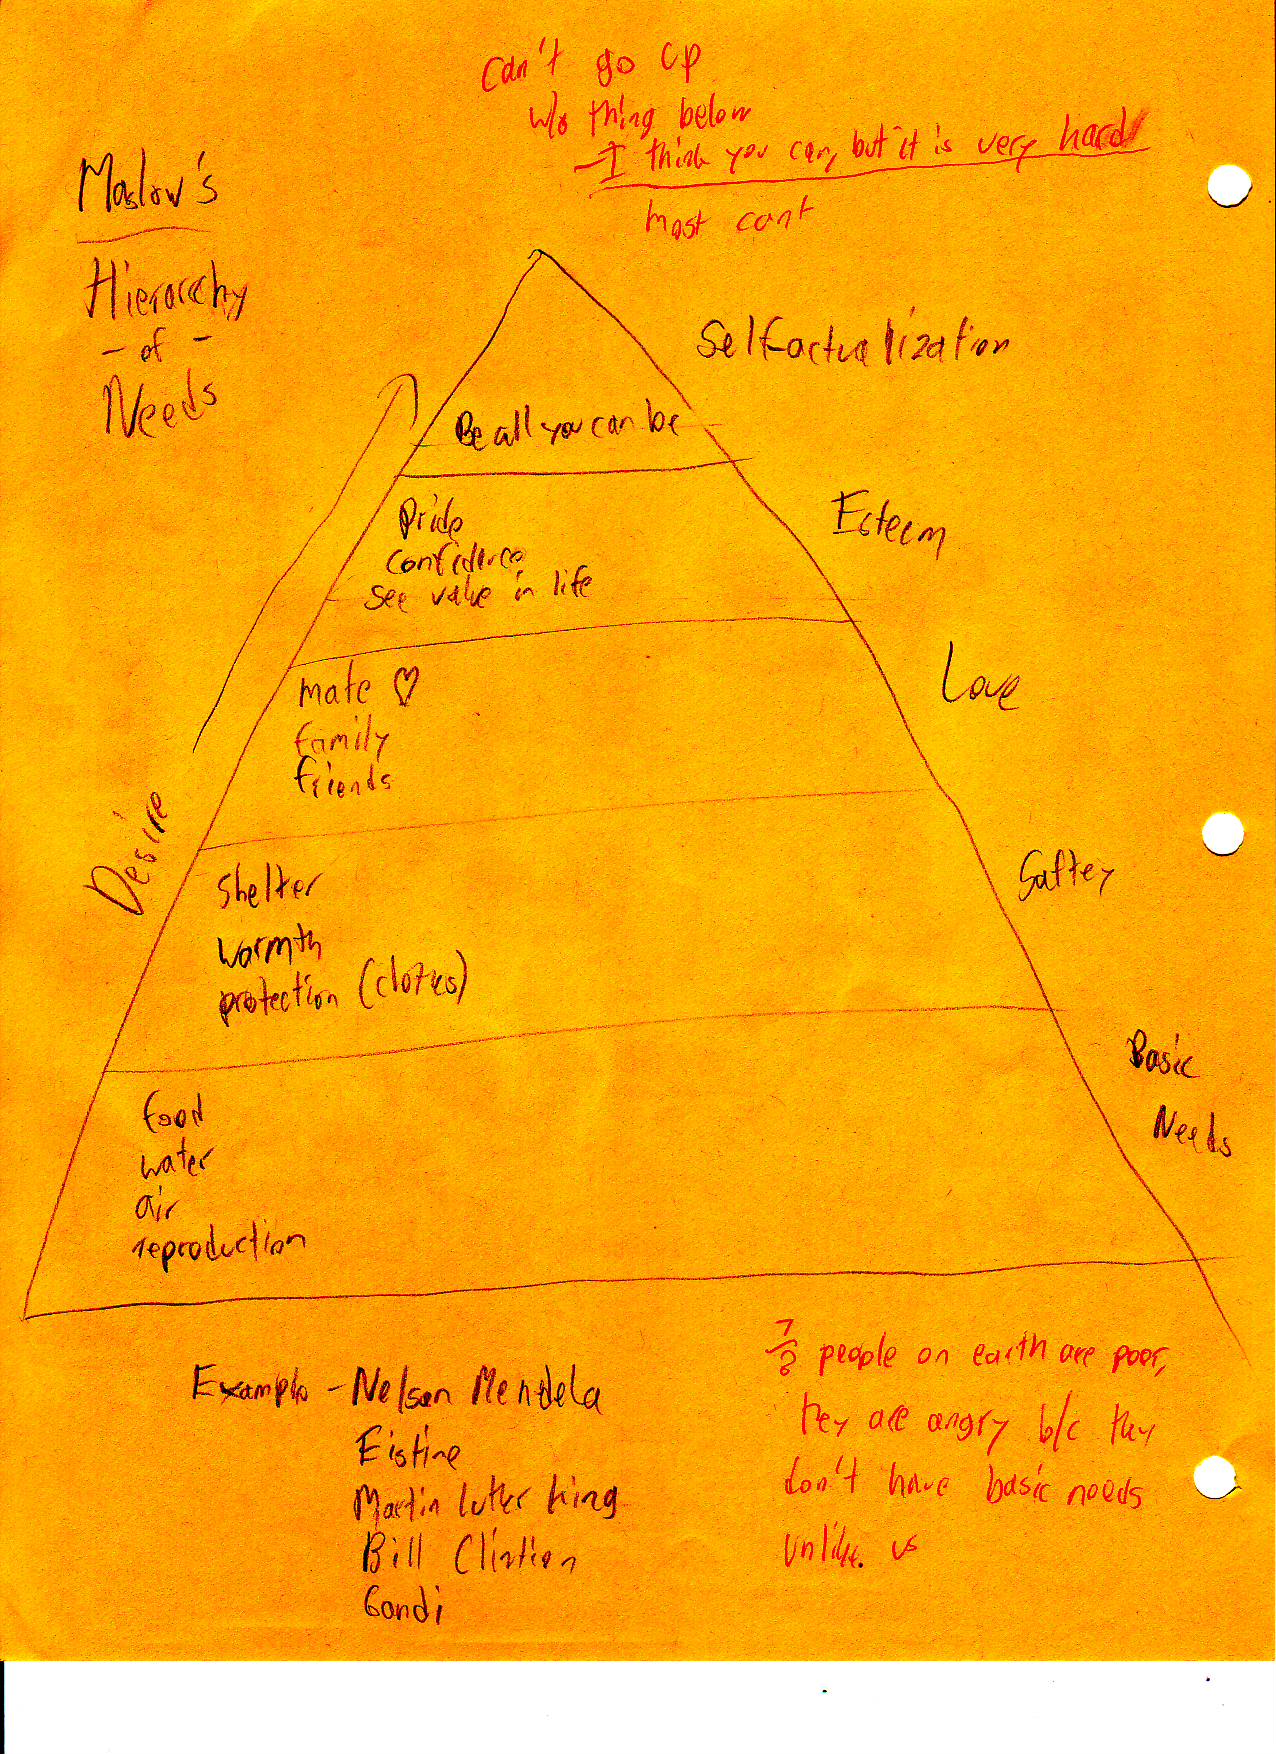 Can't go up
w/o thing below
- I think you can, but it is very hard
most cant
Maslow's
Hierarchy
- of -
Needs
Self-actualization
Be all you can be
Esteem
Pride
confidence
see value in life
Love
mate ♡
family
friends
Desire
Saftey
shelter
warmth
protection (clothes)
Basic
Needs
food
water
air
reproduction
Example - Nelson Mendela
Eistine
Martin luther king
Bill Clintion
Gandi
people on earth are poor,
they are angry b/c they
don't have basic needs
unlike us